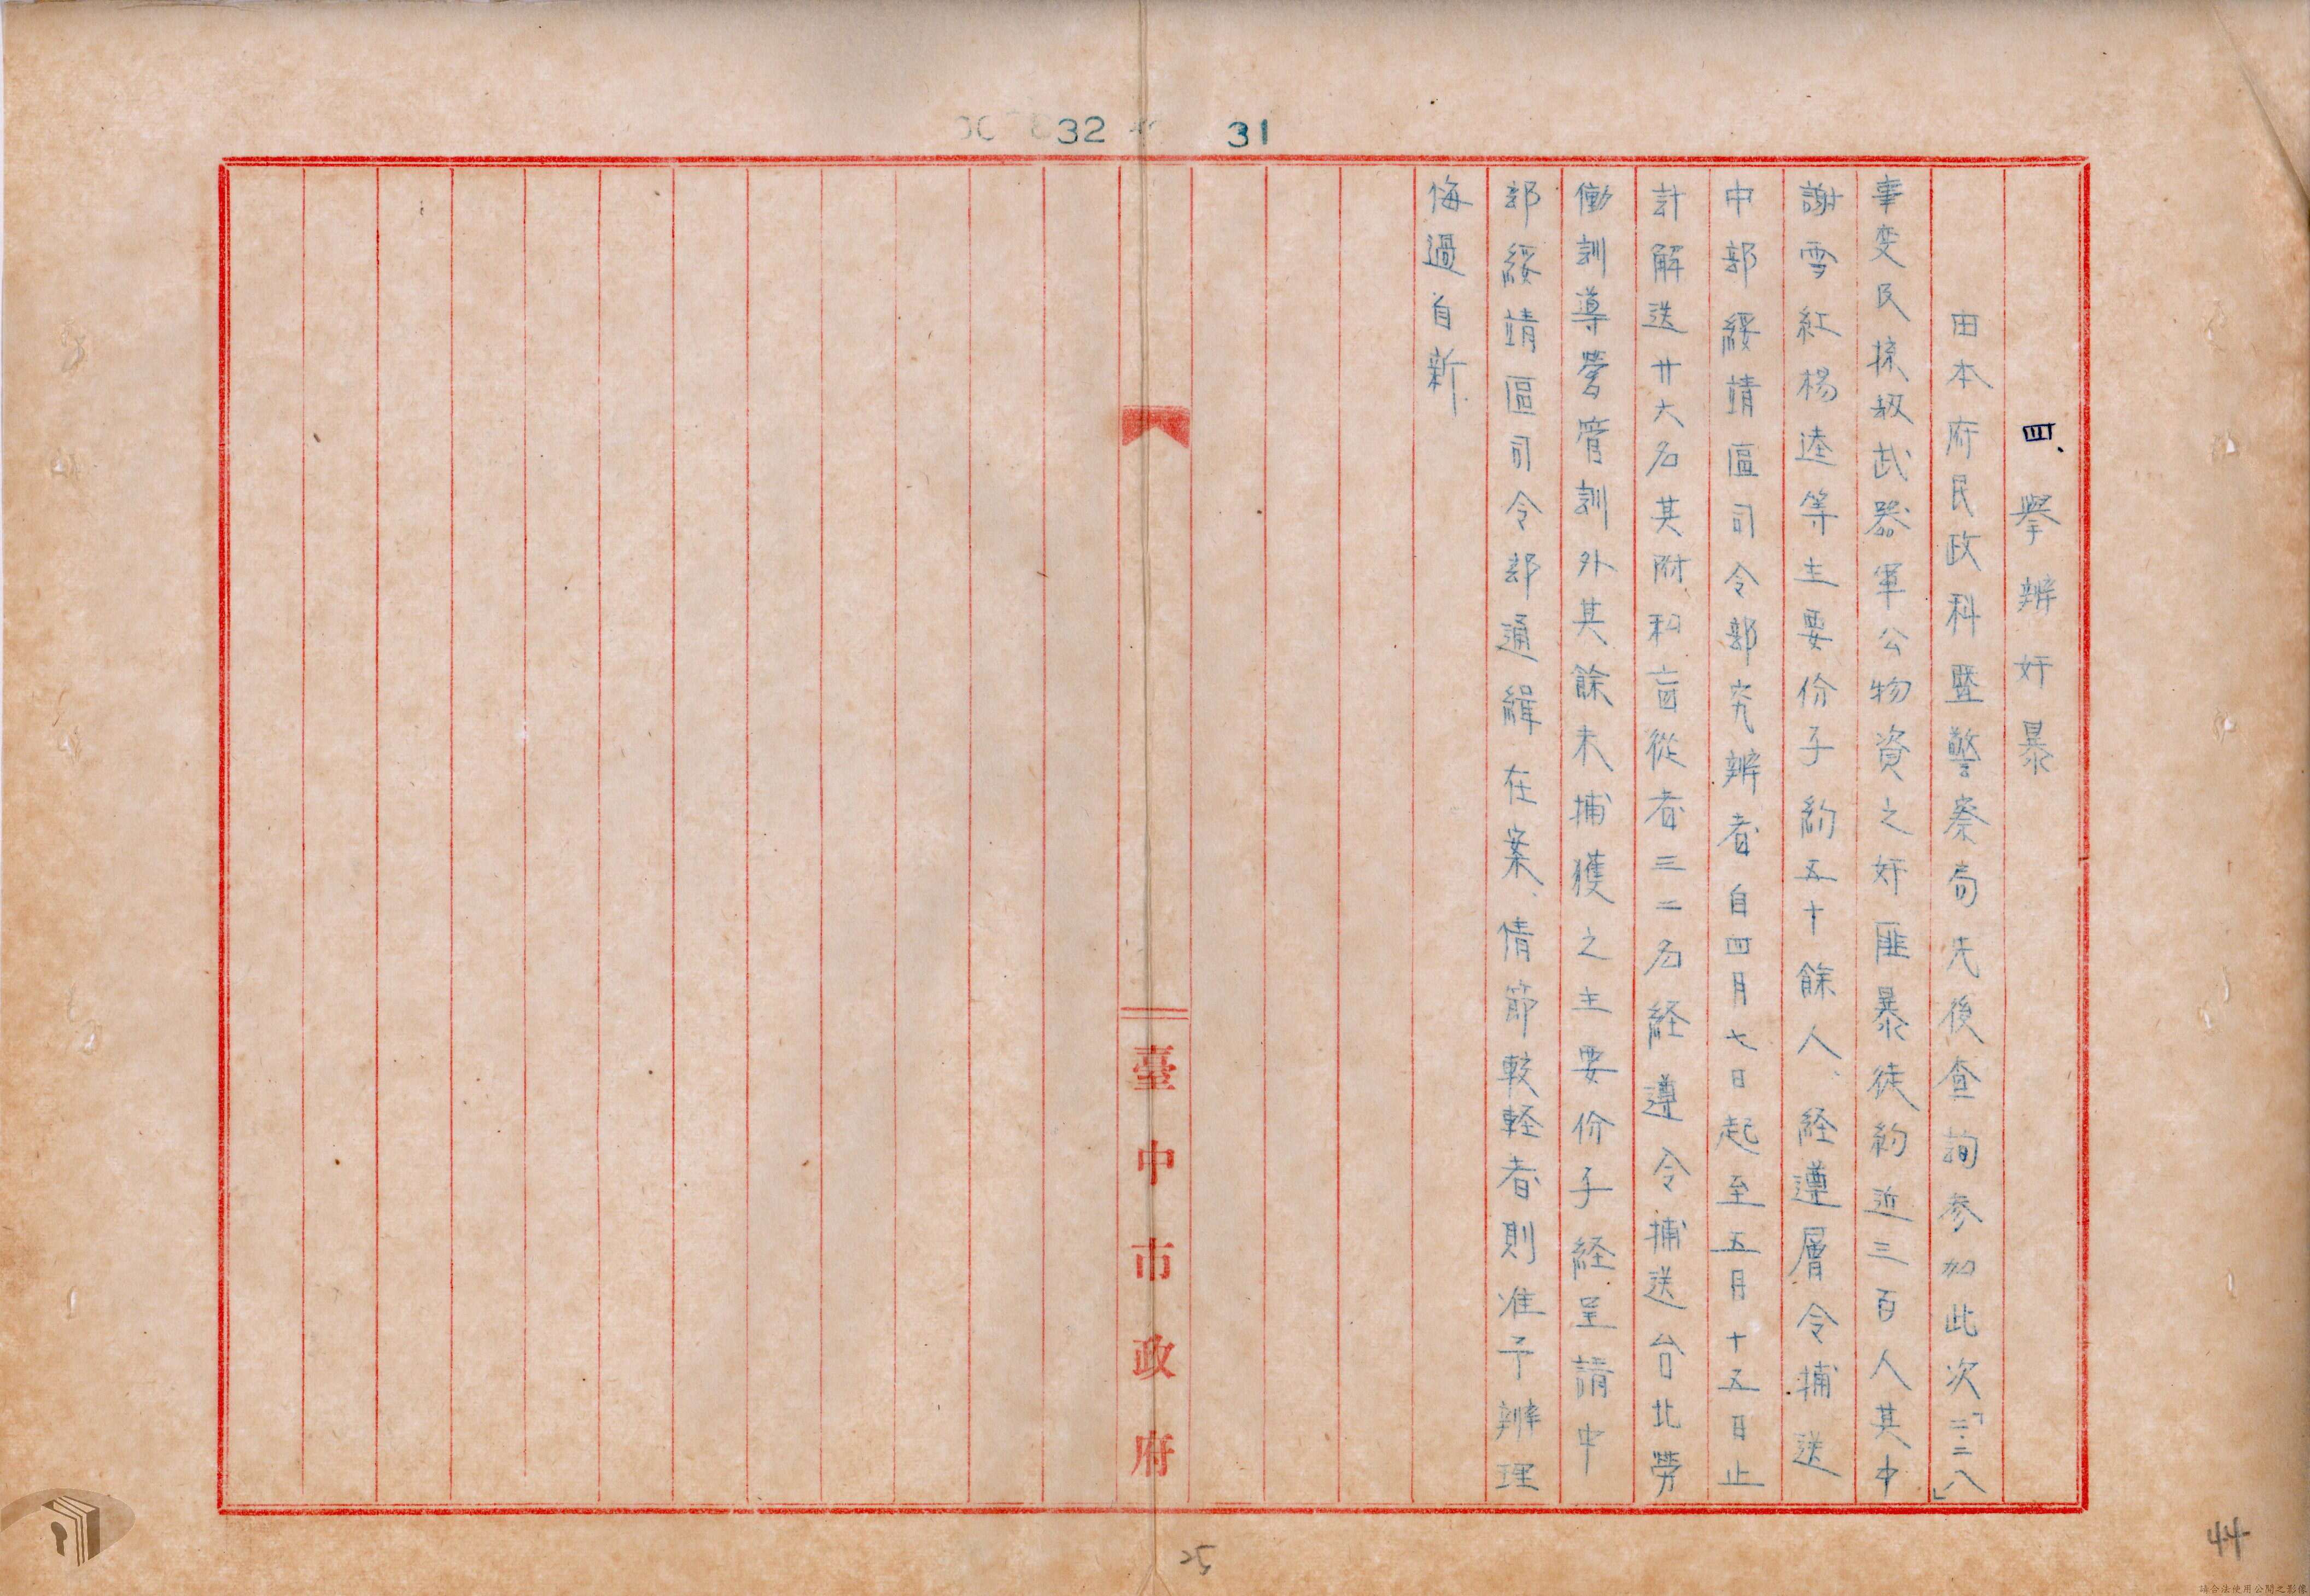 32
31
四、舉辦奸暴
由本府民政科暨警察局先後查詢参加此次「三・二八」
事変及掠刼武器軍公物資之奸匪暴徒約近三百人其中
謝雪紅楊逵等主要份子約五十餘人、経遵層令捕送
中部綏靖區司令部究辦者自四月七日起至五月十五日止
計解送廿六名其附和盲從者三二名経遵令捕送台北勞
働訓導營管訓外其餘未捕獲之主要份子経呈請中
部綏靖區司令部通緝在案、情節較軽者則准予辦理
悔過自新
臺中市政府
25
44
請合法使用公開之影像